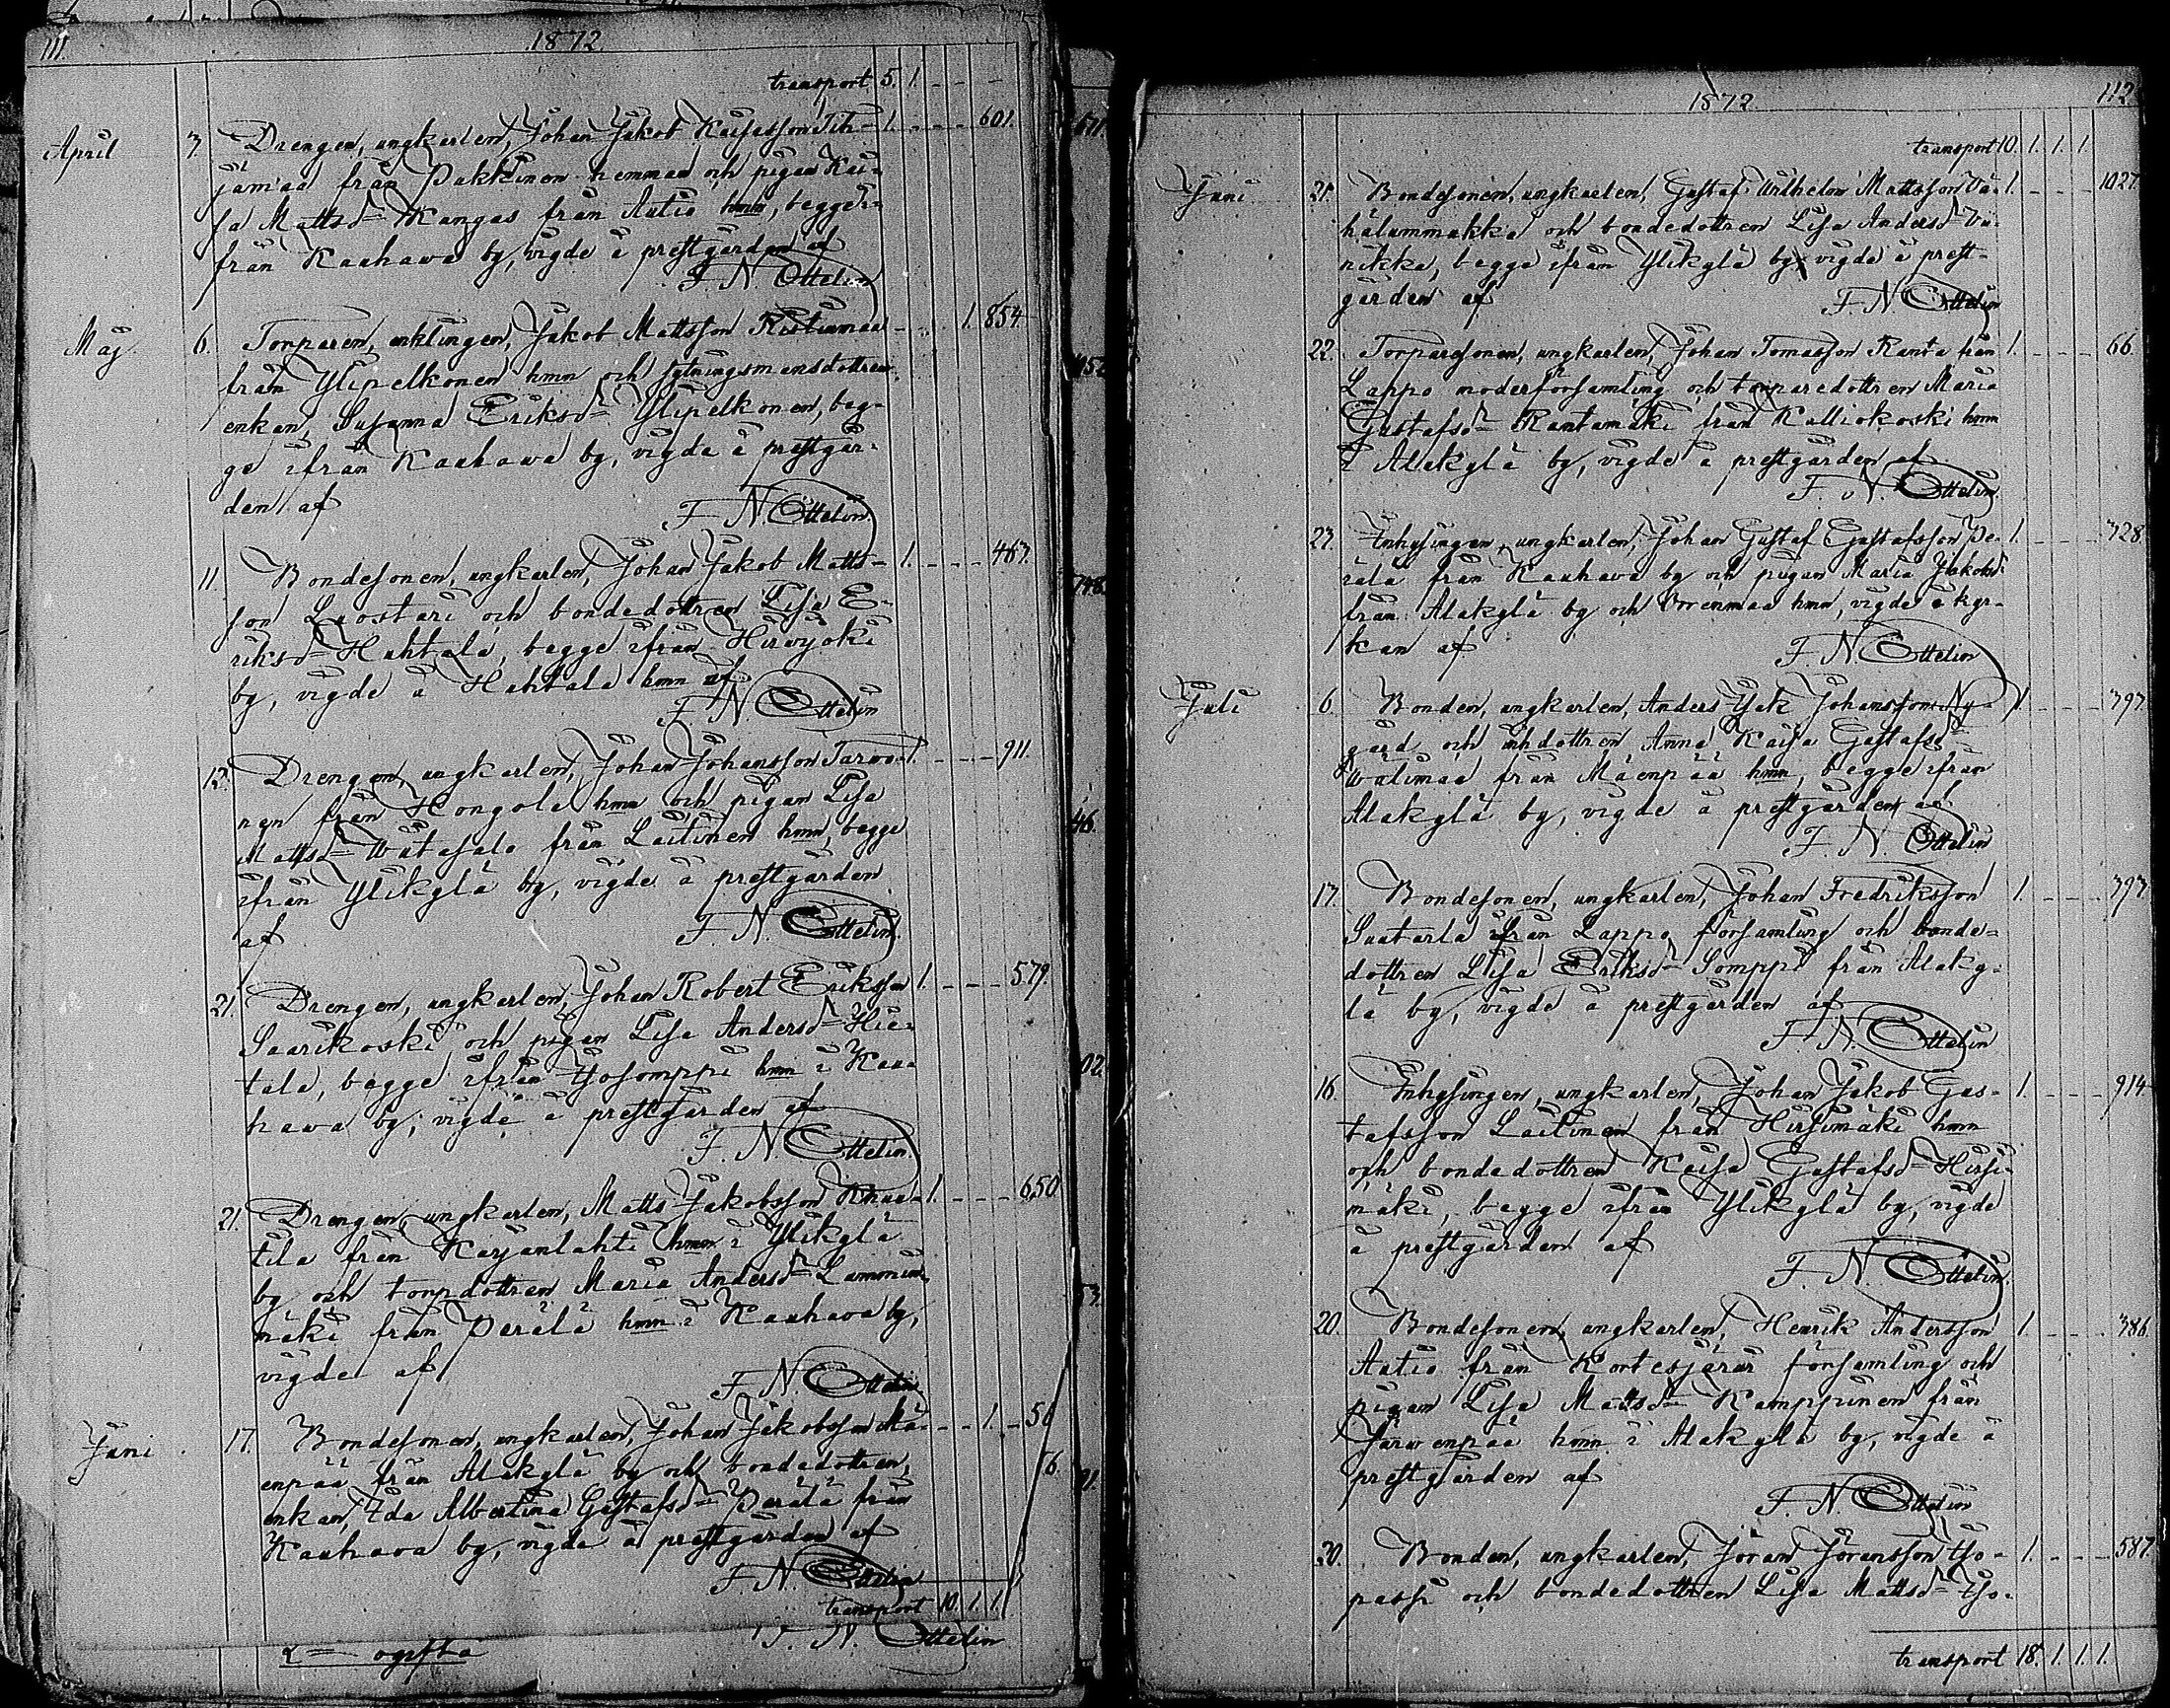 111.
1872.
transport 5. 1. - - -
April 7. Drengen, ungkarlen, Johan Jakob Kaisasson Tih- 1. - - - 601.
jämaa från Pakkinen hemman och pigan Kai-
sa Mattsd Kangas från Autio hmn, begge i-
från Kauhava by, vigde å prestgården af
F. N. Ottelin
Maj 6. Torparen, enklingen, Jakob Mattsson Ristimaa - - - 1. 854.
från Ylipelkonen hmn och sytningsmansdottren,
enkan, Susanna Eriksd Ylipelkonen, beg-
ge ifrån Kauhawa by, vigde å prestgår-
den af
F. N. Ottelin
11. Bondesonen, ungkarlen, Johan Jakob Matts- 1. - - - 463.
son Luostari och bondedottren Lisa E-
riksd Hahtala, begge ifrån Hirvijoki
by, vigde å Hahtala hmn af
F. N. Ottelin
12. Drengen, ungkarlen, Johan Johansson Tarvo- 1. - - - 911.
nen från Hongola hmn och pigan Lisa
Mattsd Wiitasalo från Laitinen hmn, begge
ifrån Ylikylä by, vigde å prestgården
af
F. N. Ottelin
21. Drengen, ungkarlen, Johan Robert Eriksson 1. - - - 579.
Saarikoski och pigan Lisa Andersd Hie-
tala, begge ifrån Isosomppi hmn i Kau-
hawa by, vigde å prestgården af
F. N. Ottelin.
21. Drengen, ungkarlen, Matts Jakobsson Knuu- 1. - - - 650
tila från Karjanlahti hmn i Ylikylä
by och torpdottren Maria Andersd Lammin-
mäki från Perälä hmn i Kauhava by,
vigde af
F. N. Ottelin
Juni 17. Bondesonen, ungkarlen, Johan Jakobsson Mä- - - 1. - 56
enpää från Alakylä by och bondedottren, 76.
enkan, Ida Albertina Gustafsd Perälä från
Kauhava by, vigde å prestgården af
F. N. Ottelin
transport 10. 1. 1.
F. N. Ottelin
ogifta
1872
112
transport 10. 1. 1. 1.
Juni 21. Bondesonen, ungkarlen, Gustaf Wilhelm Mattsson Vä- 1. - - - 1027.
hälummukka och bondedottren Lisa Andersd Vu-
nikka, begge ifrån Ylikylä by, vigde å prest-
gården af F. N. Ottelin
22. Torparesonen, ungkarlen, Johan Tomasson Ranta från 1. - - - 66.
Lappo moderförsamling och torparedottren Maria
Gustafsd Rantamäki från Kalliokoski hmn
i Alakylä by, vigde å prestgården af
F. N. Ottelin
23. Inhysingen, ungkarlen, Johan Gustaf Gustafsson Pe- 1. - - - 328
rälä från Kauhava by och pigan Maria Jakobsd
från Alakylä by och Orrenmaa hmn, vigde å kyr-
kan af
F. N. Ottelin
Juli 6. Bonden, ungkarlen, Anders Isak Johansson Ny- 1. - - - 393.
gård och inhdottren Anna Kaisa Gustafsd
Wälimaa från Mäenpää hmn, begge ifrån
Alakylä by, vigde å prestgården af
F. N. Ottelin
17. Bondesonen, ungkarlen, Johan Fredriksson 1. - - - 393.
Saatarla ifrån Lappo församling och bonde-
dottren Lisa Eriksd Somppi från Alaky-
lä by, vigde å prestgården af
F. N. Ottelin
16. Inhysingen, ungkarlen, Johan Jakob Gus- 1. - - - 914.
tafsson Laitinen från Hirsimäki hmn
och bondedottren Kaisa Gustafsd Hirsi-
mäki, begge ifrån Ylikylä by, vigde
å prestgården af
F. N. Ottelin
20. Bondesonen, ungkarlen, Henrik Andersson 1. - - - 386.
Autio från Kortesjärvi församling och
pigan Lisa Mattsd Kamppinen från
Järvenpää hmn i Alakylä by, vigde å
prestgården af
F. N. Ottelin
20. Bonden, ungkarlen, Jöran Jöransson Iso- 1. - - - 587.
passi och bondedottren Lisa Mattsd Iso-
transport 18. 1. 1. 1.